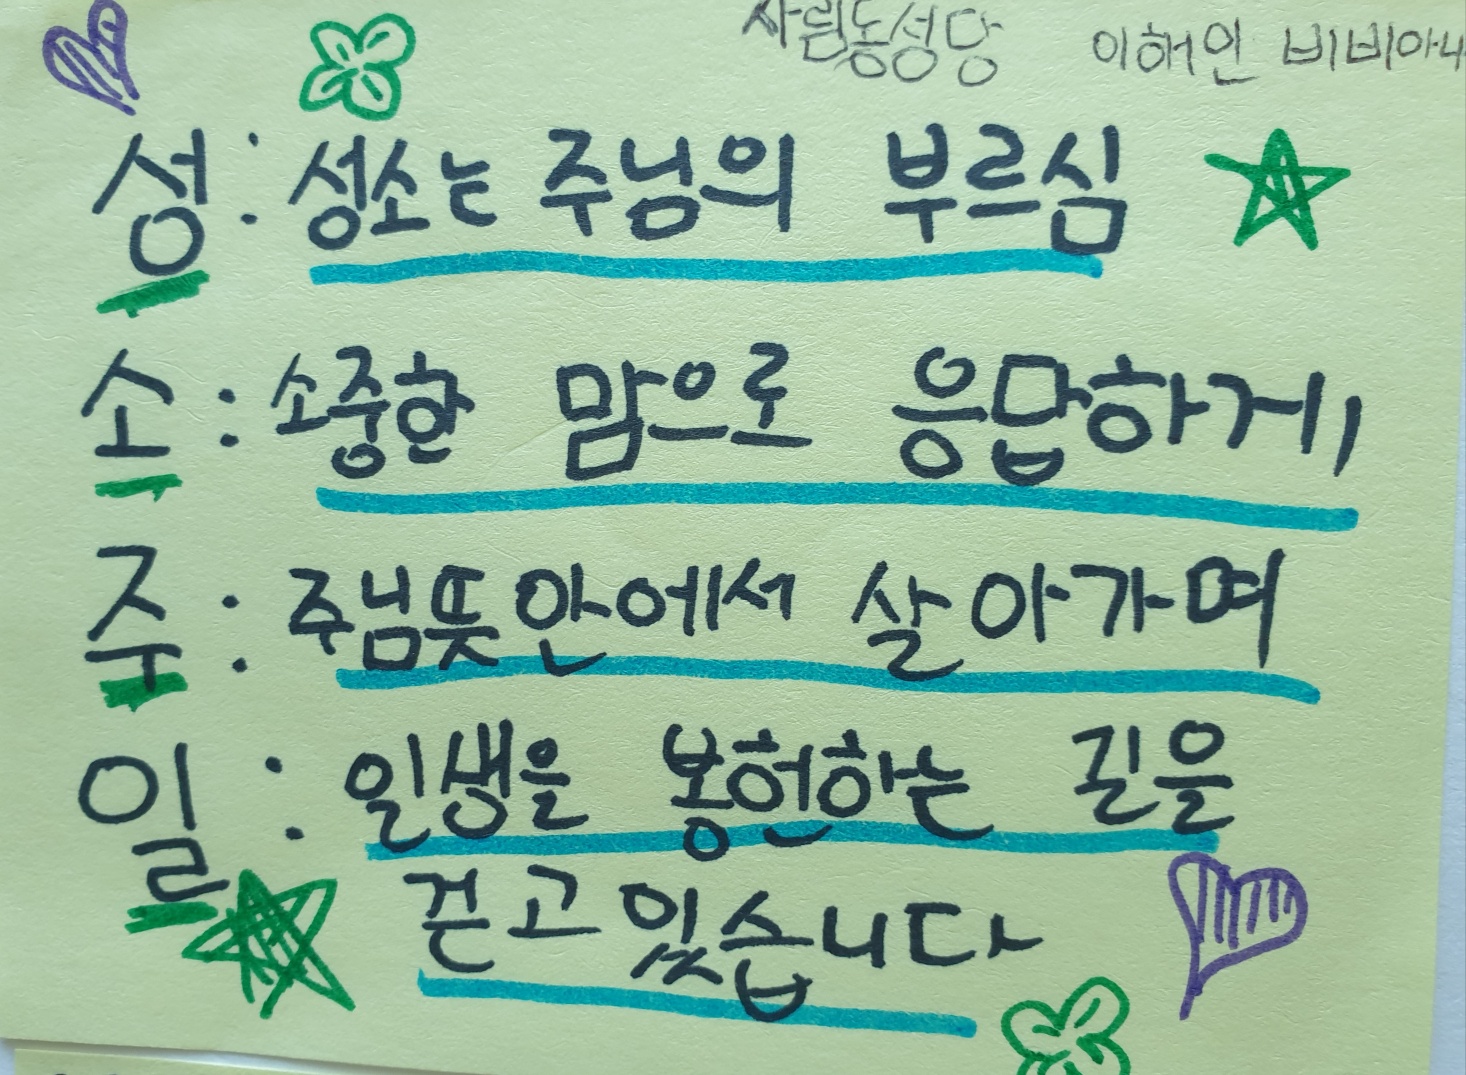 사림동성당 이해인 비비아나
성: 성소는 주님의 부르심
소: 소중한 맘으로 응답하게,
주: 주님뜻안에서 살아가며
일: 일생을 봉헌하는 길을
걷고있습니다